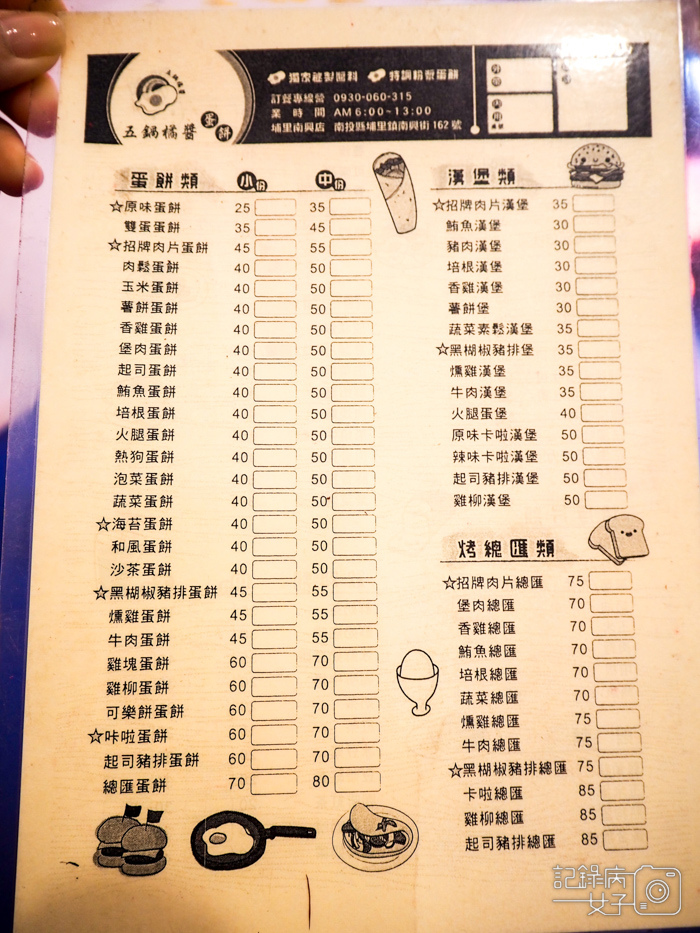 五鍋橘醬
蛋餅
獨家秘製醬料 特調粉漿蛋餅
訂餐專線 0930-060-315
業 時 間 AM6:00~13:00
埔里南興店 南投縣埔里鎮南興街162號
蛋餅類 小份 中份
☆原味蛋餅 25 35
雙蛋蛋餅 35 45
☆招牌肉片蛋餅 45 55
肉鬆蛋餅 40 50
玉米蛋餅 40 50
薯餅蛋餅 40 50
香雞蛋餅 40 50
堡肉蛋餅 40 50
起司蛋餅 40 50
鮪魚蛋餅 40 50
培根蛋餅 40 50
火腿蛋餅 40 50
熱狗蛋餅 40 50
泡菜蛋餅 40 50
蔬菜蛋餅 40 50
☆海苔蛋餅 40 50
和風蛋餅 40 50
沙茶蛋餅 40 50
☆黑糊椒豬排蛋餅 45 55
燻雞蛋餅 45 55
牛肉蛋餅 45 55
雞塊蛋餅 60 70
雞柳蛋餅 60 70
可樂餅蛋餅 60 70
☆咔啦蛋餅 60 70
起司豬排蛋餅 60 70
總匯蛋餅 70 80
漢堡類
☆招牌肉片漢堡 35
鮪魚漢堡 30
豬肉漢堡 30
培根漢堡 30
香雞漢堡 30
薯餅堡 30
蔬菜素鬆漢堡 35
☆黑糊椒豬排堡 35
燻雞漢堡 35
牛肉漢堡 35
火腿蛋堡 40
原味卡啦漢堡 50
辣味卡啦漢堡 50
起司豬排漢堡 50
雞柳漢堡 50
烤總匯類
☆招牌肉片總匯 75
堡肉總匯 70
香雞總匯 70
鮪魚總匯 70
培根總匯 70
蔬菜總匯 70
燻雞總匯 75
牛肉總匯 75
☆黑糊椒豬排總匯 75
卡啦總匯 85
雞柳總匯 85
起司豬排總匯 85
記錄病
女子